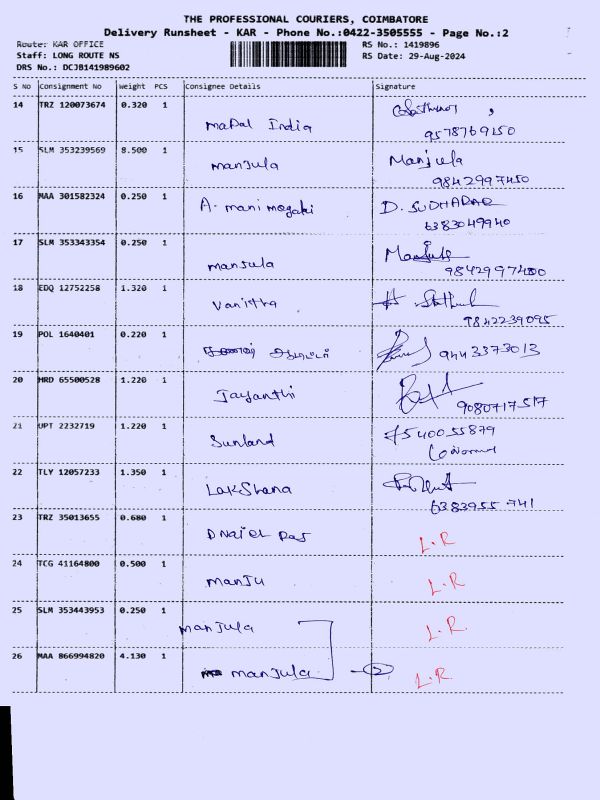 THE PROFESSIONAL COURIERS, COIMBATORE
Delivery Runsheet - KAR - Phone No.:0422-3505555 - Page No.:2
Route: KAR OFFICE RS No.: 1419896
Staff: LONG ROUTE NS RS Date: 29-Aug-2024
DRS No.: DCJB141989602
S No Consignment No Weight PCS Consignee Details Signature
14 TRZ 120073674 0.320 1
maPal India
9578769150
15 SLM 353239569 8.500 1 Manjula
manjula
9842997450
16 MAA 301582324 0.250 1
A. mani megalai D. SUDHAKAR
6383049940
17 SLM 353343354 0.250 1
manjula
18 EDQ 12752258 1.320 1
Vanitha
9842239095
19 POL 1640401 0.220 1
9443373013
20 HRD 65500528 1.220 1
Jayanthi
9080717517
21 UPT 2232719 1.220 1 7540055879
Sunland
22 TLY 12057233 1.350 1
LakShana
6383955 741
23 TRZ 35013655 0.680 1
L.R
24 TCG 41164800 0.500 1
manJu L.R
25 SLM 353443953 0.250 1
manJula L.R.
26 MAA 866994820 4.130 1
manJula 2 L.R